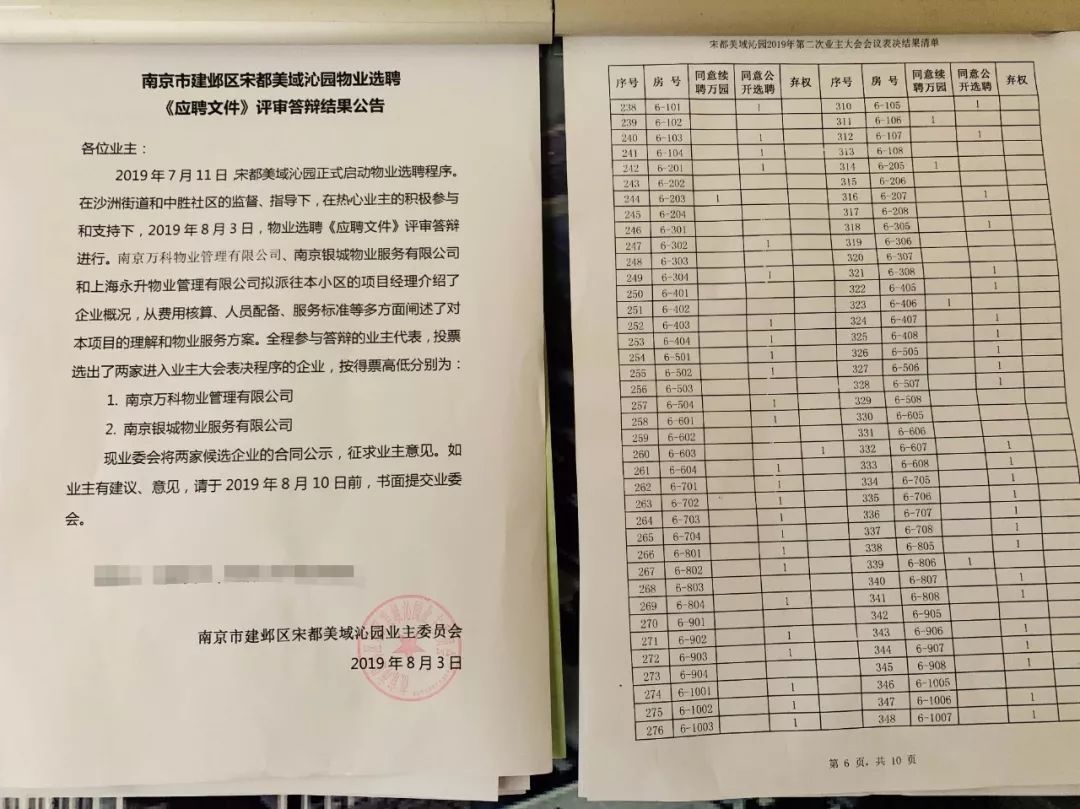 南京市建邺区宋都美域沁园物业选聘
《应聘文件》评审答辩结果公告
各位业主：
2019年7月11日,宋都美域沁园正式启动物业选聘程序。
在沙洲街道和中胜社区的监督、指导下，在热心业主的积极参与
和支持下，2019年8月3日，物业选聘《应聘文件》评审答辩
进行。南京万科物业管理有限公司、南京银城物业服务有限公司
和上海永升物业管理有限公司拟派往本小区的项目经理介绍了
企业概况，从费用核算、人员配备、服务标准等多方面阐述了对
本项目的理解和物业服务方案。全程参与答辩的业主代表，投票
选出了两家进入业主大会表决程序的企业，按得票高低分别为：
1. 南京万科物业管理有限公司
2. 南京银城物业服务有限公司
现业委会将两家候选企业的合同公示，征求业主意见。如
业主有建议、意见，请于2019年8月10日前，书面提交业委
会。
南京市建邺区宋都美域沁园业主委员会
2019年8月3日
宋都美域沁园2019年第二次业主大会会议表决结果清单
序号 房号 同意续聘万园 同意公开选聘 弃权 序号 房号 同意续聘万园 同意公开选聘 弃权
238 6-101 1 310 6-105 1
239 6-102 311 6-106 1
240 6-103 1 312 6-107 1
241 6-104 1 313 6-108
242 6-201 1 314 6-205 1
243 6-202 315 6-206
244 6-203 1 316 6-207 1
245 6-204 317 6-208
246 6-301 318 6-305 1
247 6-302 1 319 6-306
248 6-303 320 6-307
249 6-304 1 321 6-308 1
250 6-401 322 6-405 1
251 6-402 323 6-406 1
252 6-403 1 324 6-407 1
253 6-404 1 325 6-408 1
254 6-501 1 326 6-505 1
255 6-502 1 327 6-506 1
256 6-503 328 6-507 1
257 6-504 1 329 6-508
258 6-601 1 330 6-605
259 6-602 331 6-606
260 6-603 1 332 6-607 1
261 6-604 1 333 6-608 1
262 6-701 1 334 6-705 1
263 6-702 1 335 6-706 1
264 6-703 1 336 6-707 1
265 6-704 1 337 6-708 1
266 6-801 1 338 6-805 1
267 6-802 1 339 6-806 1
268 6-803 340 6-807 1
269 6-804 1 341 6-808 1
270 6-901 342 6-905
271 6-902 1 343 6-906 1
272 6-903 1 344 6-907 1
273 6-904 345 6-908
274 6-1001 1 346 6-1005
275 6-1002 1 347 6-1006 1
276 6-1003 1 348 6-1007 1
第 6 页，共 10 页